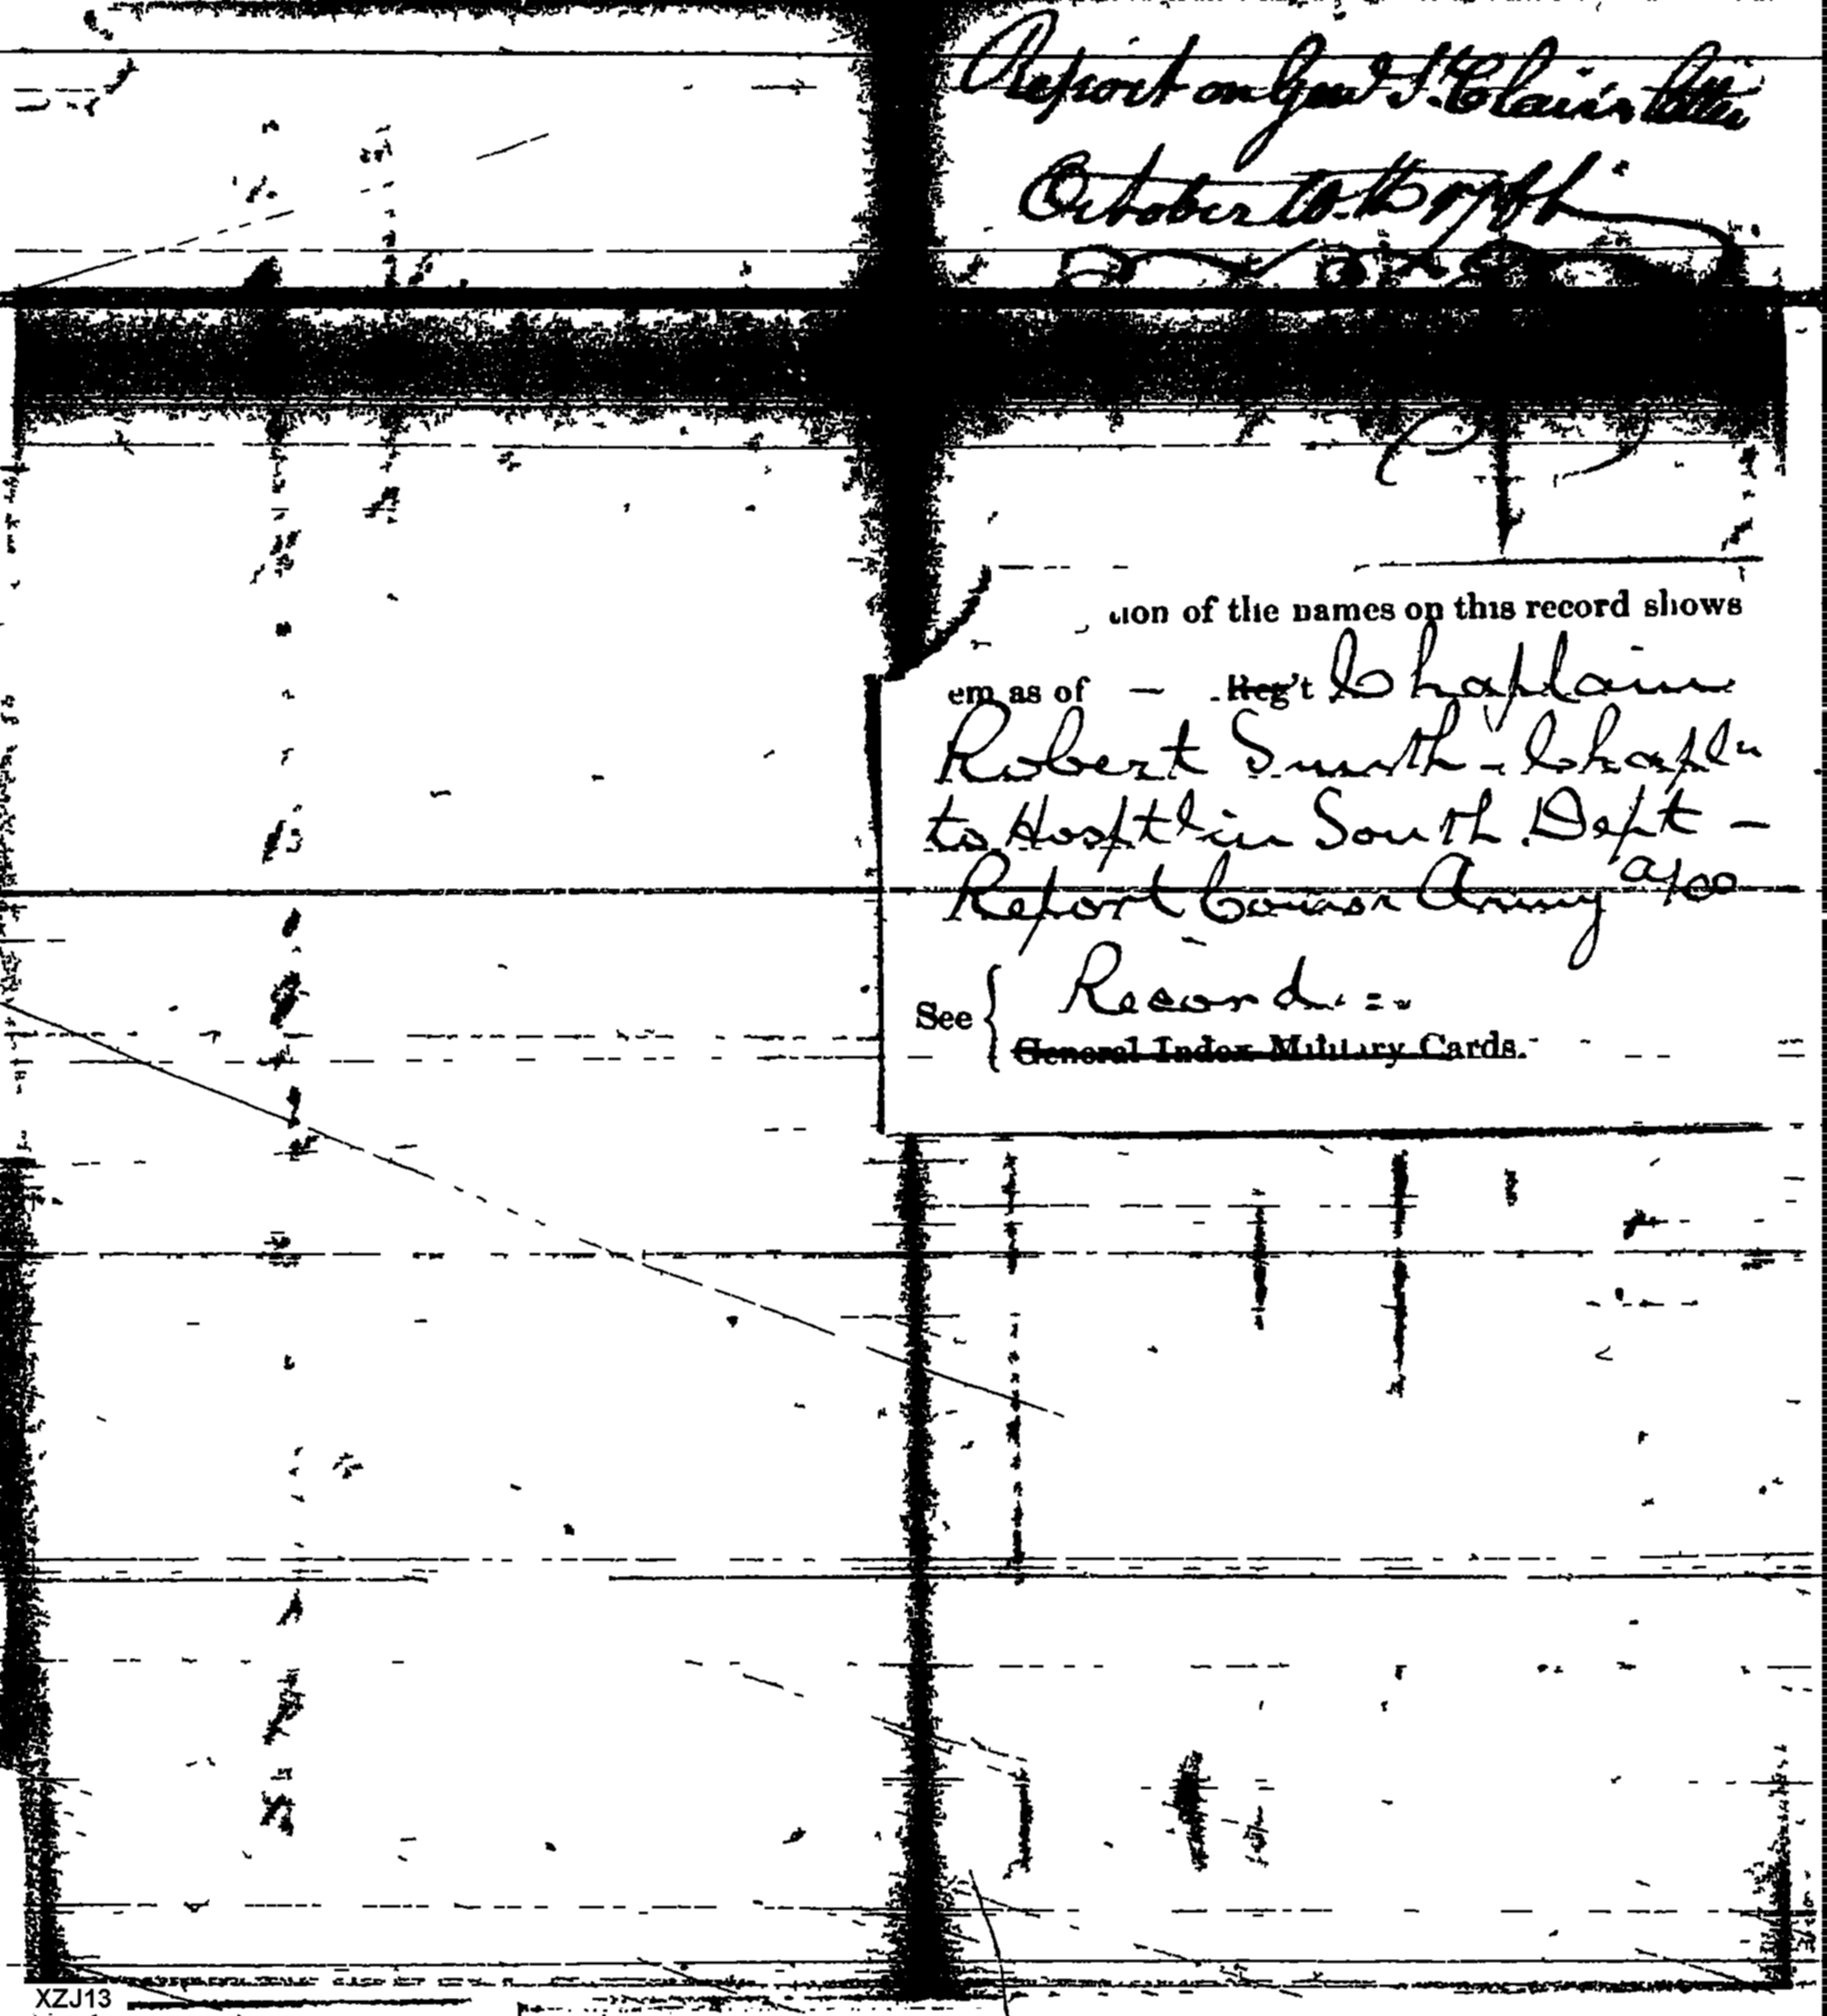 Report on Gen'l St. Clair's letter
October
ion of the names on this record shows
em as of — Reg't Chaplain
Robert Smith - Chapln
to Hosptl in South Dept -
Report Army
See { Record
General Index Military Cards.
XZJ13